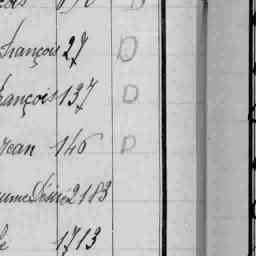 François 27 D
rançois 137 D
Jean 146 D
ume Désiré 2183
1713